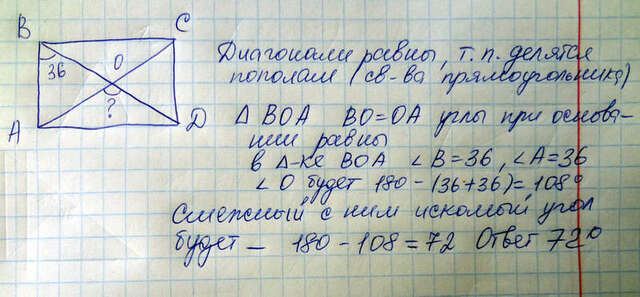 B
C
36
O
?
A
D
Диагонали равны, т.п. делятся
пополам (св-ва прямоугольника)
Δ BOA BO=OA углы при основа-
нии равны
в Δ-ке BOA ∠B=36, ∠A=36
∠O будет 180-(36+36)=108°
Смежный с ним искомый угол
будет - 180-108=72 Ответ 72°